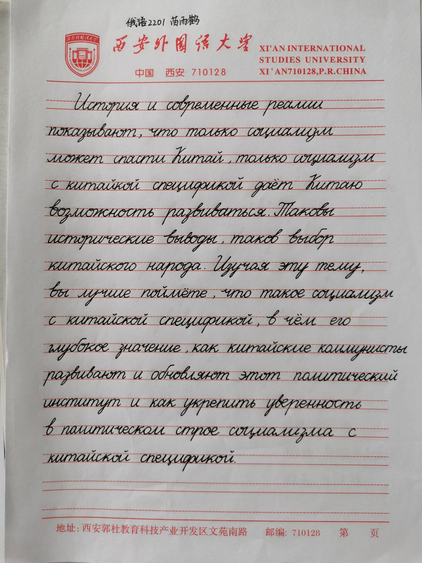 俄语2201 苗雨鹤
西安外国语大学
XI'AN INTERNATIONAL
STUDIES UNIVERSITY
中国 西安 710128
XI'AN710128,P.R.CHINA
История и современные реалии
показывают, что только социализм
может спасти Китай, только социализм
с китайкой спецификой даёт Китаю
возможность развиваться. Таковы
исторические выводы, таков выбор
китайского народа. Изучая эту тему,
вы лучше поймёте, что такое социализм
с китайской спецификой, в чём его
глубокое значение, как китайские коммунисты
развивают и обновляют этот политический
институт и как укрепить уверенность
в политическом строе социализма с
китайской спецификой.
地址: 西安郭杜教育科技产业开发区文苑南路 邮编: 710128 第 页